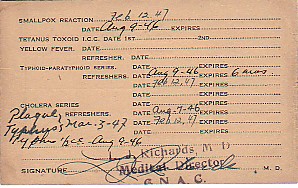 SMALLPOX REACTION Feb 12, 47
DATE Aug 9-46 EXPIRES
TETANUS TOXOID I.C.C. DATE 1ST. 2ND.
YELLOW FEVER. DATE EXPIRES
REFRESHERS. DATE
TYPHOID-PARATYPHOID SERIES. DATE EXPIRES
REFRESHER. DATE Aug 9-46 EXPIRES 6 mos.
DATE Feb 12, 47 EXPIRES
DATE EXPIRES
CHOLERA SERIES DATE Aug-9-46 EXPIRES
Plague REFRESHER DATE Feb 12 47 EXPIRES
Typhus Mar. 3-47 DATE EXPIRES
Typhus 1cc. Aug 9-46
Richards, M D
SIGNATURE Medical Director M. D.
C.N.A.C.